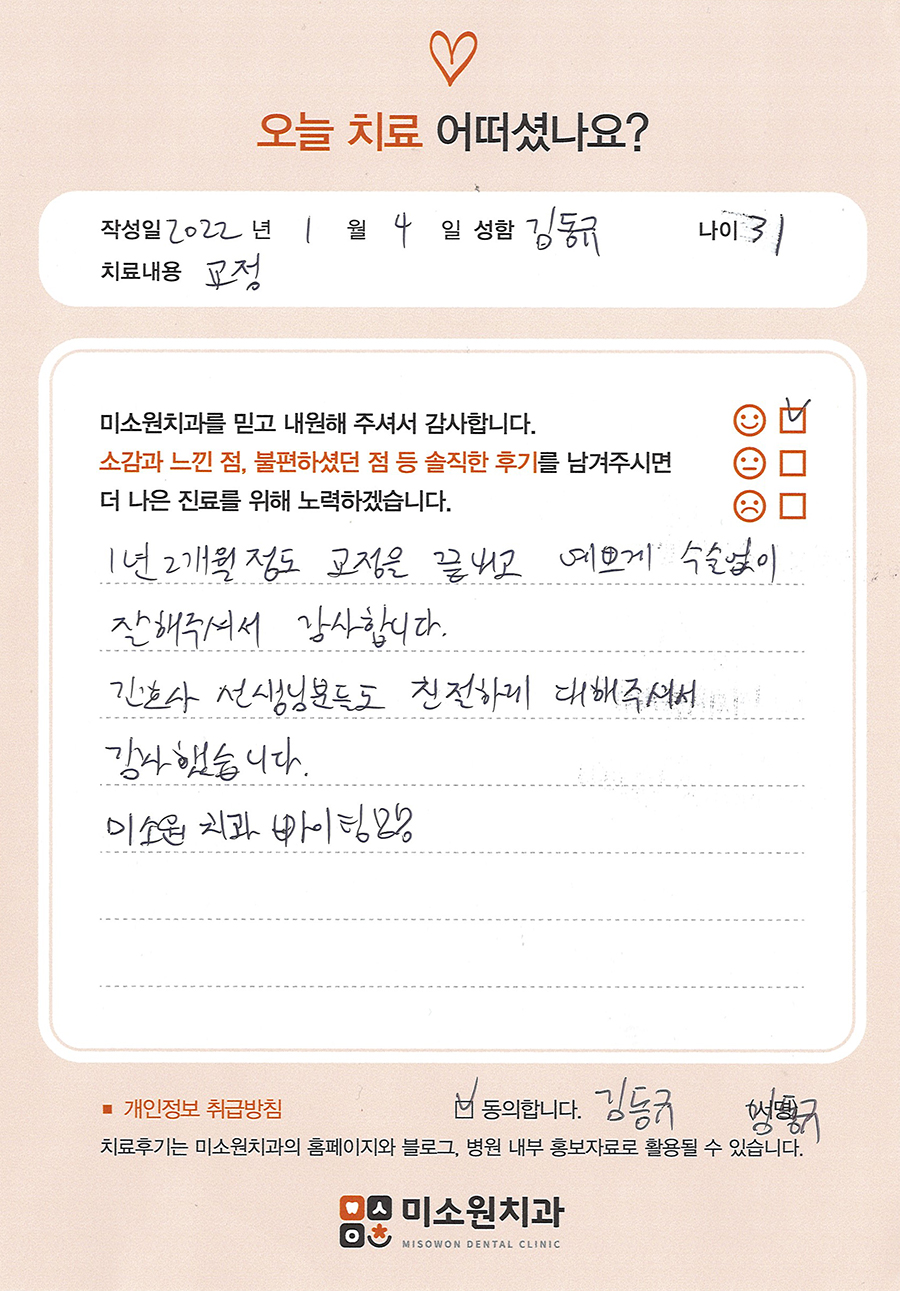 오늘 치료 어떠셨나요?
작성일 2022 년 1 월 4 일 성함 김동규 나이 31
치료내용 교정
미소원치과를 믿고 내원해 주셔서 감사합니다.
소감과 느낀 점, 불편하셨던 점 등 솔직한 후기를 남겨주시면
더 나은 진료를 위해 노력하겠습니다.
1년 2개월 정도 교정을 끝내고 예쁘게 수술없이
잘해주셔서 감사합니다.
간호사 선생님분들도 친절하게 대해주셔서
감사했습니다.
미소원 치과 화이팅
■ 개인정보 취급방침 동의합니다. 김동규 (서명) 김동규
치료후기는 미소원치과의 홈페이지와 블로그, 병원 내부 홍보자료로 활용될 수 있습니다.
미소원치과
MISOWON DENTAL CLINIC